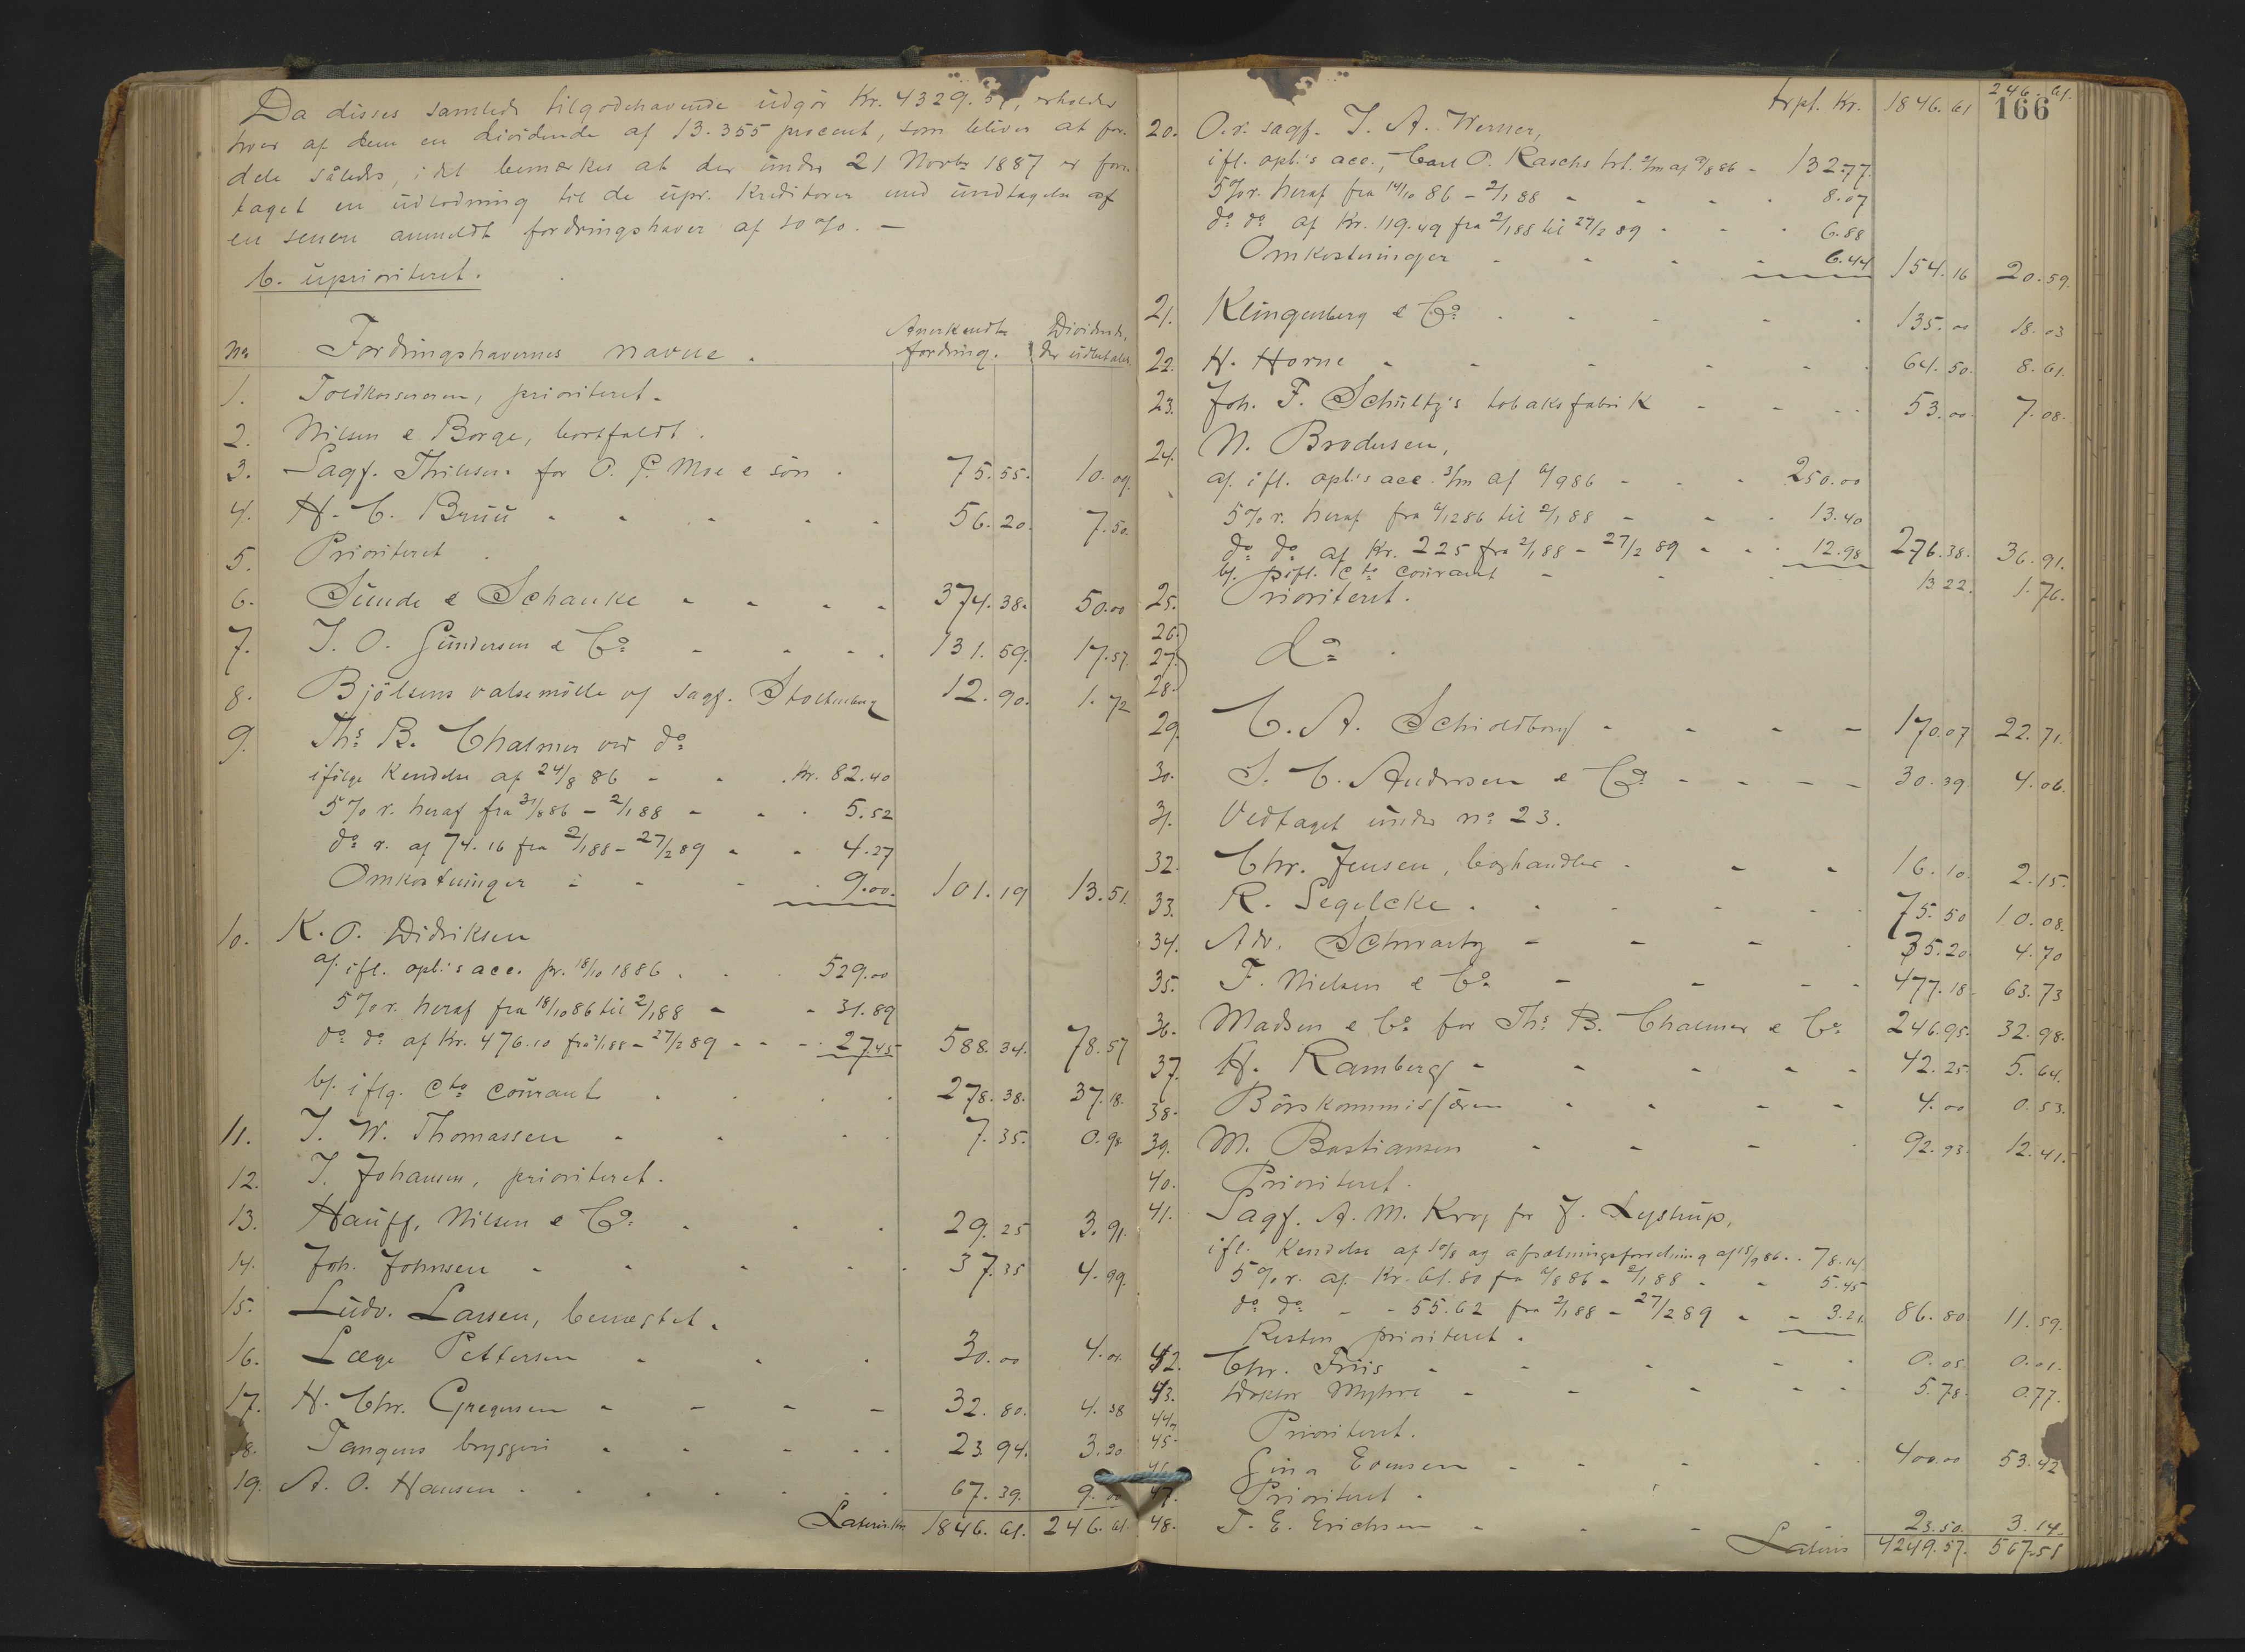 Da disses samlede tilgodehavende udgör Kr. 4329.57, erholder
hver af dem en dividende af 13.355 procent, som bliver at for-
dele således, idet bemærkes at der under 21 Novbr 1887 er fore-
taget en udlodning til de upr. Kreditorer med undtagelse af
en senere anmeldt fordringshaver af 10 %. —
b. uprioriteret.
No Fordringshavernes navne. Anerkendte fordring. Dividende, der udbetales.
1. Toldkassereren, prioriteret.
2. Nilsen & Borge, bortfaldt.
3. Sagf. Thilesen for O. P. Moe & sön . 75.55. 10.09.
4. H. C. Bruu - - - - - 56.20. 7.50.
5. Prioriteret.
6. Sunde & Schanke - - - - 374.38. 50.00
7. J. O. Gundersen & Co. - - - . 131.59. 17.57.
8. Bjölsens valsemölle v/ sagf. Stoltenberg 12.90. 1.72
9. Ths. B. Chalmer ved do.
ifölge Kendelse af 24/8 86 - - . Kr. 82.40
5 % r. heraf fra 31/8 86 – 2/1 88 - - . 5.52
do. r. af 74.16 fra 2/1 88 – 27/2 89 - - 4.27
Omkostninger - - - . 9.00. 101.19 13.51.
10. K. O. Didriksen
a/ ifl. opl.'s acc. pr. 18/10 1886 . . . 529.00
5 % r. heraf fra 18/10 86 til 2/1 88 - - 31.89
do. do. af Kr. 476.10 fra 2/1 88 – 27/2 89 - - - 27.45 588.34. 78.57
b/. iflg. Cto courant . . . . 278.38. 37.18.
11. J. W. Thomassen - - - . 7.35. 0.98
12. J. Johansen, prioriteret.
13. Hauff, Nilsen & Co. . . . 29.25 3.91.
14. Joh. Johnsen - - - - . 37.35 4.99.
15. Ludv. Larsen, benægtet.
16. Læge Pettersen - - . 30.00 4.01.
17. H. Chr. Gregersen - - - - 32.80. 4.38
18. Tangens bryggeri - - - - . 23.94. 3.20
19. A. O. Hansen . . . . . . 67.39. 9.00
Lateris Kr. 1846.61. 246.61.
Trpt. Kr. 1846.61 246.61.
166
20. O.r. sagf. J. A. Werner,
ifl. opl.'s acc., Carl O. Raschs trt. 2/m af 9/8 86 - 132.77.
5 % r. heraf fra 14/10 86 – 2/1 88 - - - . 8.07
do. do. af Kr. 119.49 fra 2/1 88 til 27/2 89 - - . 6.88
Omkostninger - - - - 6.44 154.16 20.59.
21. Klingenberg & Co. . . - - . 135.00 18.03
22. H. Horne - - - - - . 64.50. 8.61.
23. Joh. F. Schultz's tobaksfabrik - - - - 53.00. 7.08.
24. N. Brodersen,
a/. ifl. opl.'s acc. 3/m af 6/9 86 - - - 250.00
5 % r. heraf fra 6/12 86 til 2/1 88 - - . 13.40
do. do. af Kr. 225 fra 2/1 88 – 27/2 89 - - - 12.98 276.38. 36.91.
b/. ifl. Cto courant - - . 13.22. 1.76.
25. Prioriteret.
26.
27. do. .
28.
29. C. A. Schioldborg - - - - 170.07 22.71.
30. S. C. Andersen & Co. - - - - 30.39 4.06.
31. Vedtaget under no. 23.
32. Chr. Jensen, boghandler . - - 16.10. 2.15.
33. R. Segelcke . . . - - . 75.50 10.08.
34. Adv. Schwartz - - - . 35.20. 4.70
35. F. Nielsen & Co. - - - - 477.18. 63.73
36. Madsen & Co. for Ths. B. Chalmer & Co. 246.95. 32.98.
37. H. Ramberg - - - - - 42.25. 5.64.
38. Börskommissæren - - - - 4.00 0.53.
39. M. Bastiansen - - - . 92.93. 12.41.
40. Prioriteret.
41. Sagf. A. M. Krog for J. Lystrup,
ifl. Kendelse af 10/8 og afsætningsforretning af 15/9 86 . . 78.14.
5 % r. af Kr. 61.80 fra 6/8 86 – 2/1 88 - - 5.45
do. do. - - 55.62 fra 2/1 88 – 27/2 89 - - 3.21. 86.80. 11.59.
Resten prioriteret.
42. Chr. Friis - - - - . 0.05 0.01.
43. Doktor Myhre - - - - - 5.78. 0.77.
44.
45. Prioriteret.
46. Gina Evensen - - - - . 400.00 53.42
47. Prioriteret .
48. T. E. Erichsen - - - - 23.50. 3.14.
Lateris 4249.57. 567.51